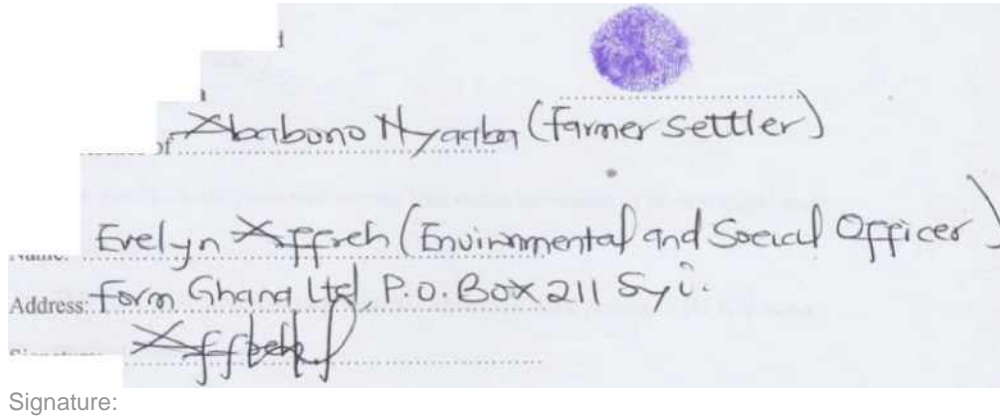 of Ababono Nyaaba (Farmer settler)
Name: Evelyn Affreh (Environmental and Social Officer)
Address: Form Ghana Ltd, P.O. Box 211 Syi.
Signature: